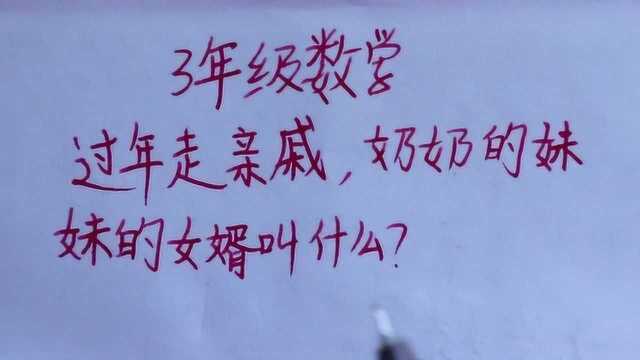 3年级数学
过年走亲戚,奶奶的妹
妹的女婿叫什么?